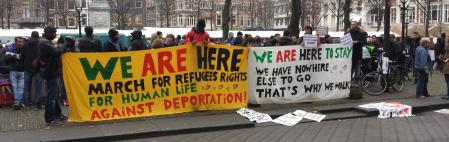 WE ARE HERE
MARCH FOR REFUGEES RIGHTS
FOR HUMAN LIFE
AGAINST DEPORTATION!
WE ARE HERE TO STAY
WE HAVE NOWHERE
ELSE TO GO
THAT'S WHY WE WALK